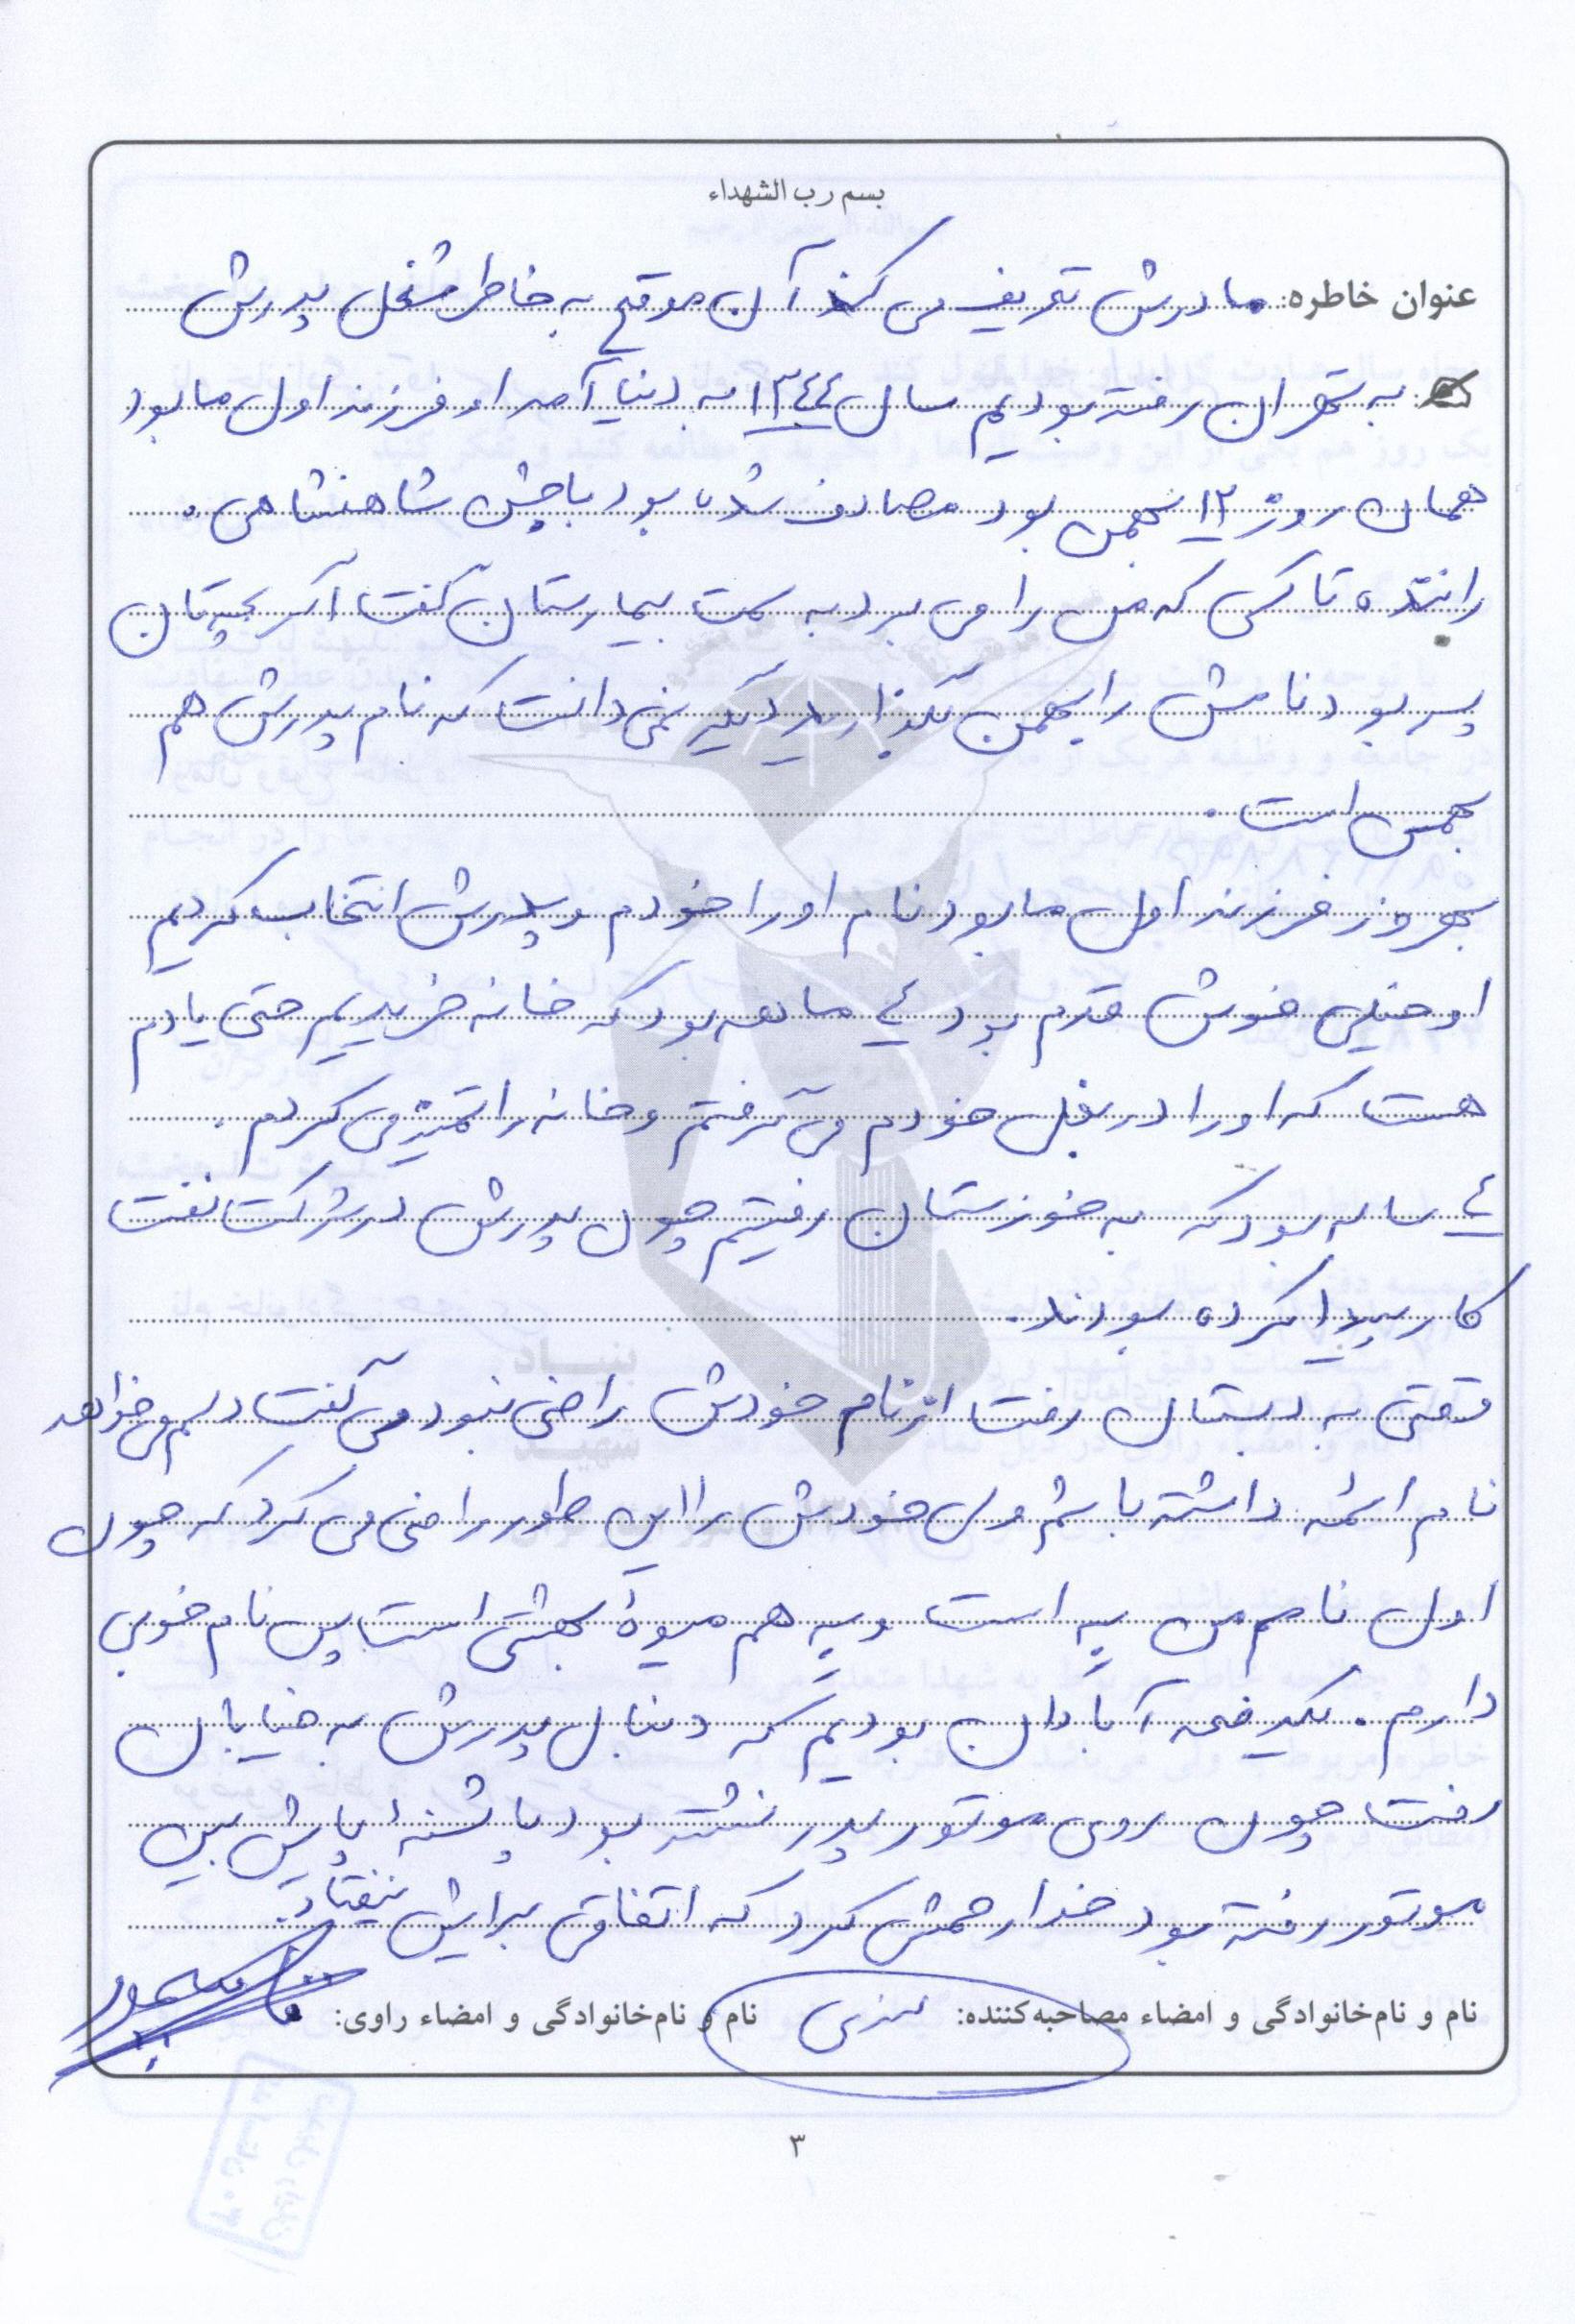 بسم رب الشهداء
عنوان خاطره: مادرش تعریف می کند آن موقع به خاطر شغل پدرش
به تهران رفته بودیم سال ۱۳۴۴ به دنیا آمد او فرزند اول ما بود
همان روز ۱۲ بهمن بود مصادف شده بود با جشن شاهنشاهی.
راننده تاکسی که من را می برد به سمت بیمارستان گفت اگر بچه تان
پسر بود نامش را بهمن بگذارید دیگر نمی دانست که نام پدرش هم
بهمن است.
بهروز فرزند اول ما بود نام او را خودم و پدرش انتخاب کردیم
او خیلی خوش قدم بود ۴ ماهه بود که خانه خریدیم حتی یادم
هست که او را در بغل خودم می گرفتم و خانه را تمیز می کردم.
۴ ساله بود که به خوزستان رفتیم چون پدرش در شرکت نفت
کار پیدا کرده بودند.
وقتی به دبستان رفت از نام خودش راضی نبود می گفت دلم می خواهد
نام ائمه داشته باشم ولی خودش را این طور راضی می کرد که چون
اول نامم من به است و به هم میوهٔ بهشتی است پس نام خوبی
دارم. یکدفعه آبادان بودیم که دنبال پدرش به خیابان
رفت چون روی موتور پدر نشسته بود پاشنهٔ پایش بین
موتور رفته بود خدا رحمش کرد که اتفاقی برایش نیفتاد.
نام و نام‌خانوادگی و امضاء مصاحبه‌کننده: نام و نام‌خانوادگی و امضاء راوی:
۳
بنیاد
شهید